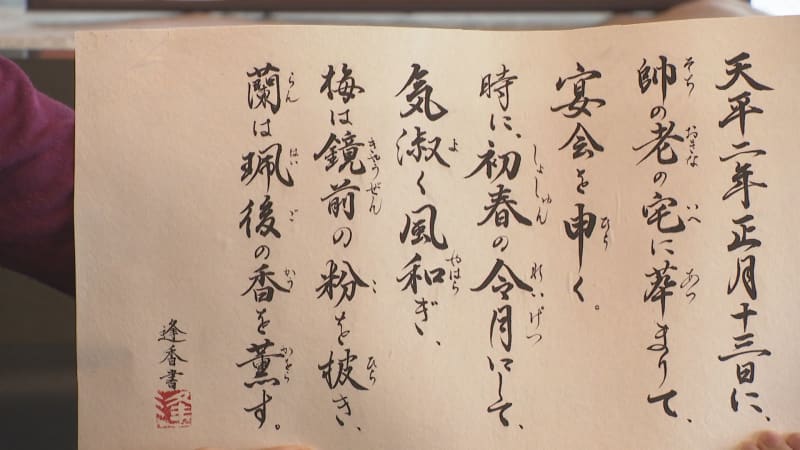 天平二年正月十三日に、
そち おきな いへ あつ
帥の老の宅に萃まりて、
ひら
宴会を申く。
しょしゅん れいげつ
時に、初春の令月にして、
よ やはら
気淑く風和ぎ、
きやうぜん こ ひら
梅は鏡前の粉を披き、
らん はい ご かう かをら
蘭は珮後の香を薫す。
逢香書
逢